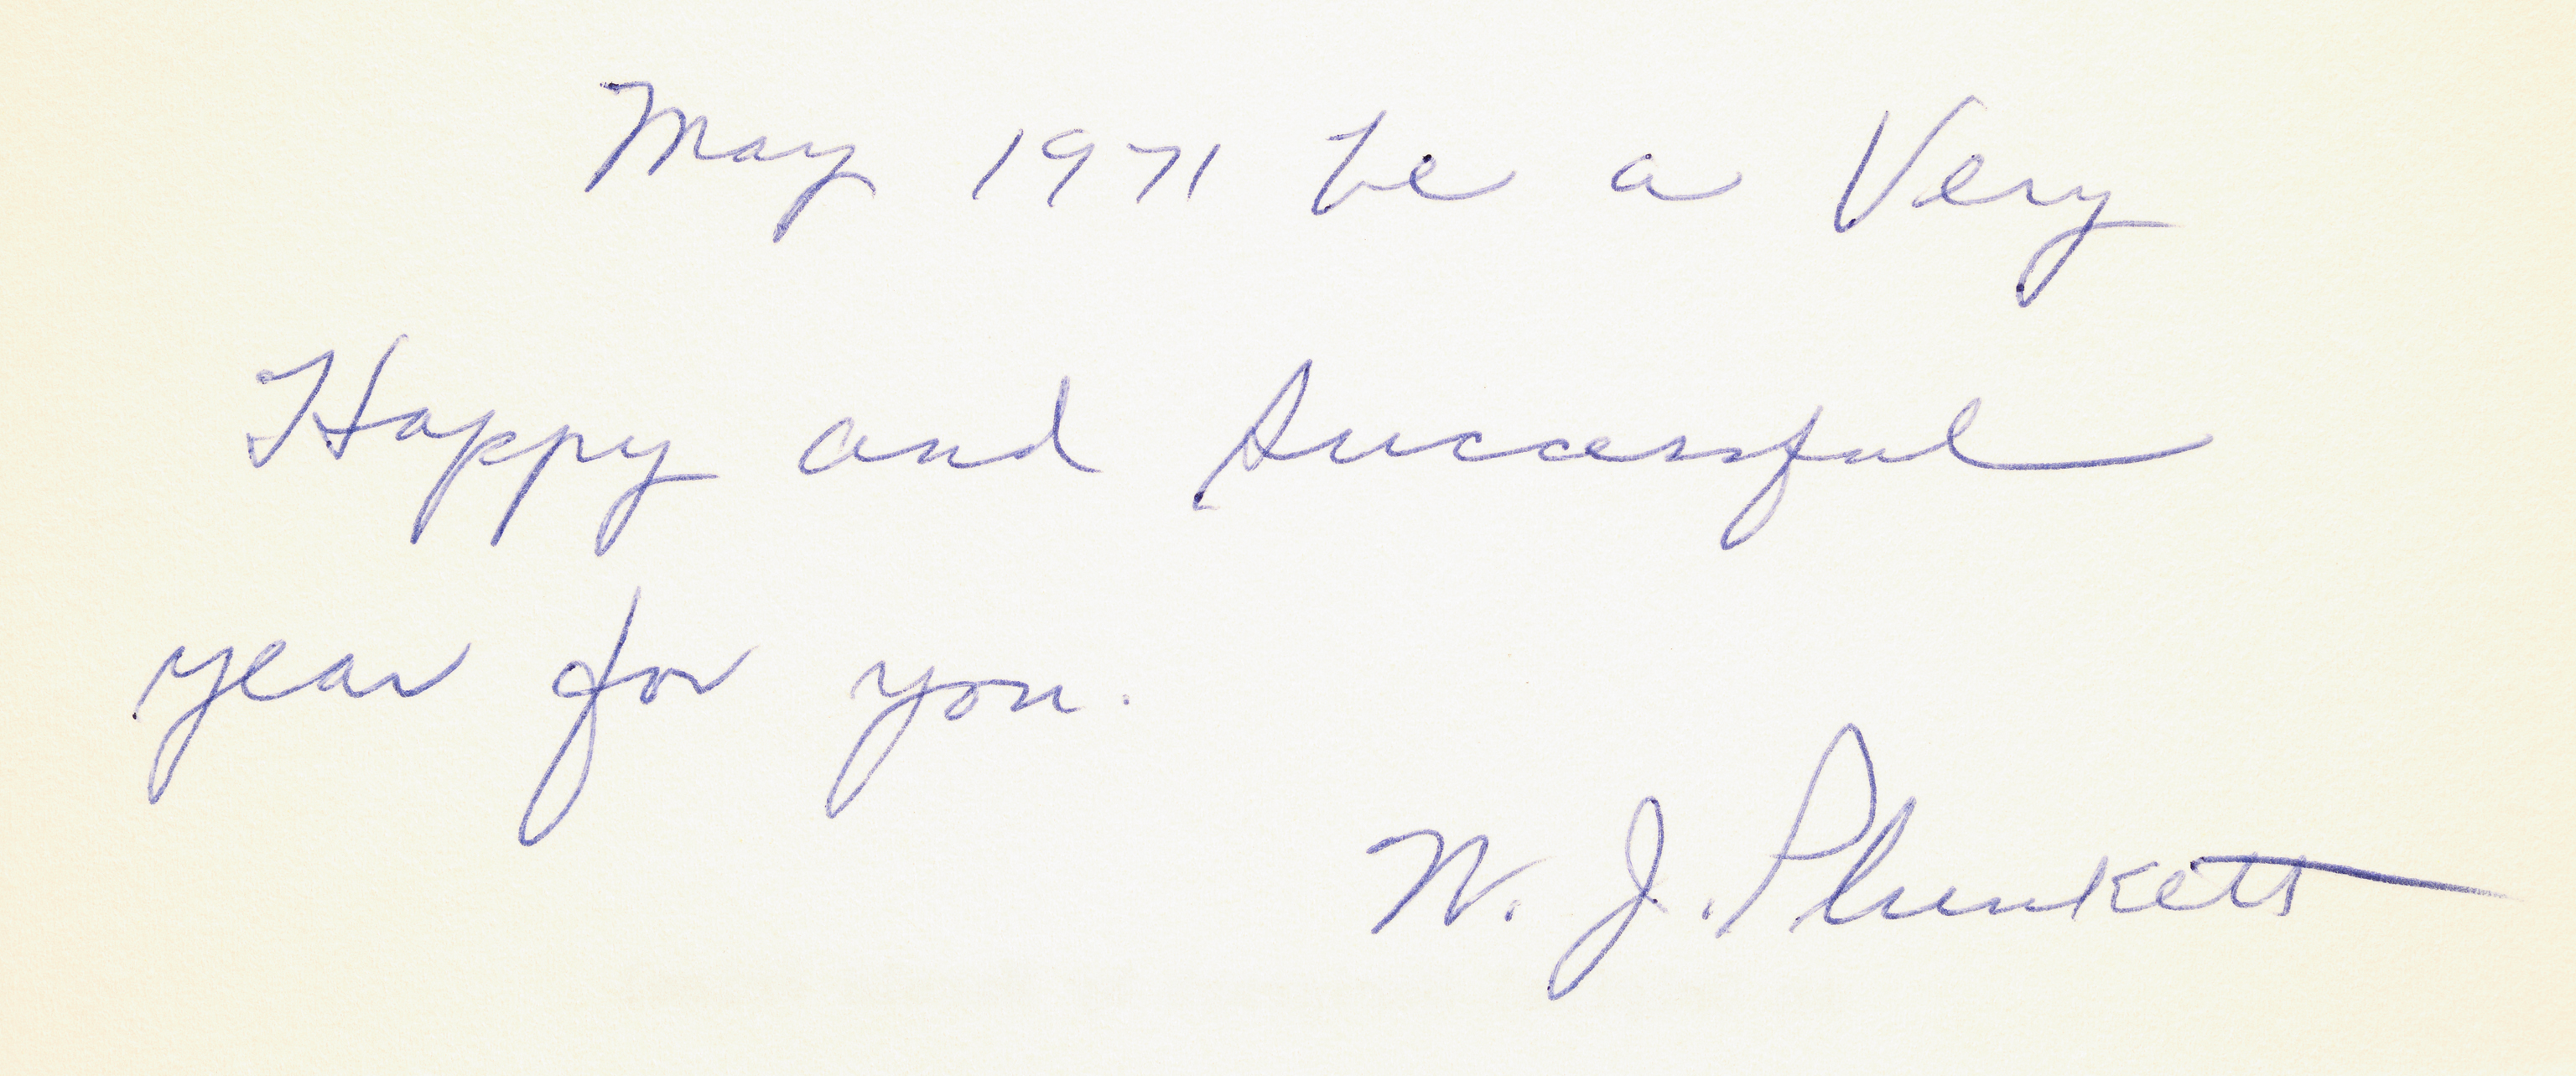 May 1971 be a Very
Happy and Successful
year for you.
W. J. Plunkett